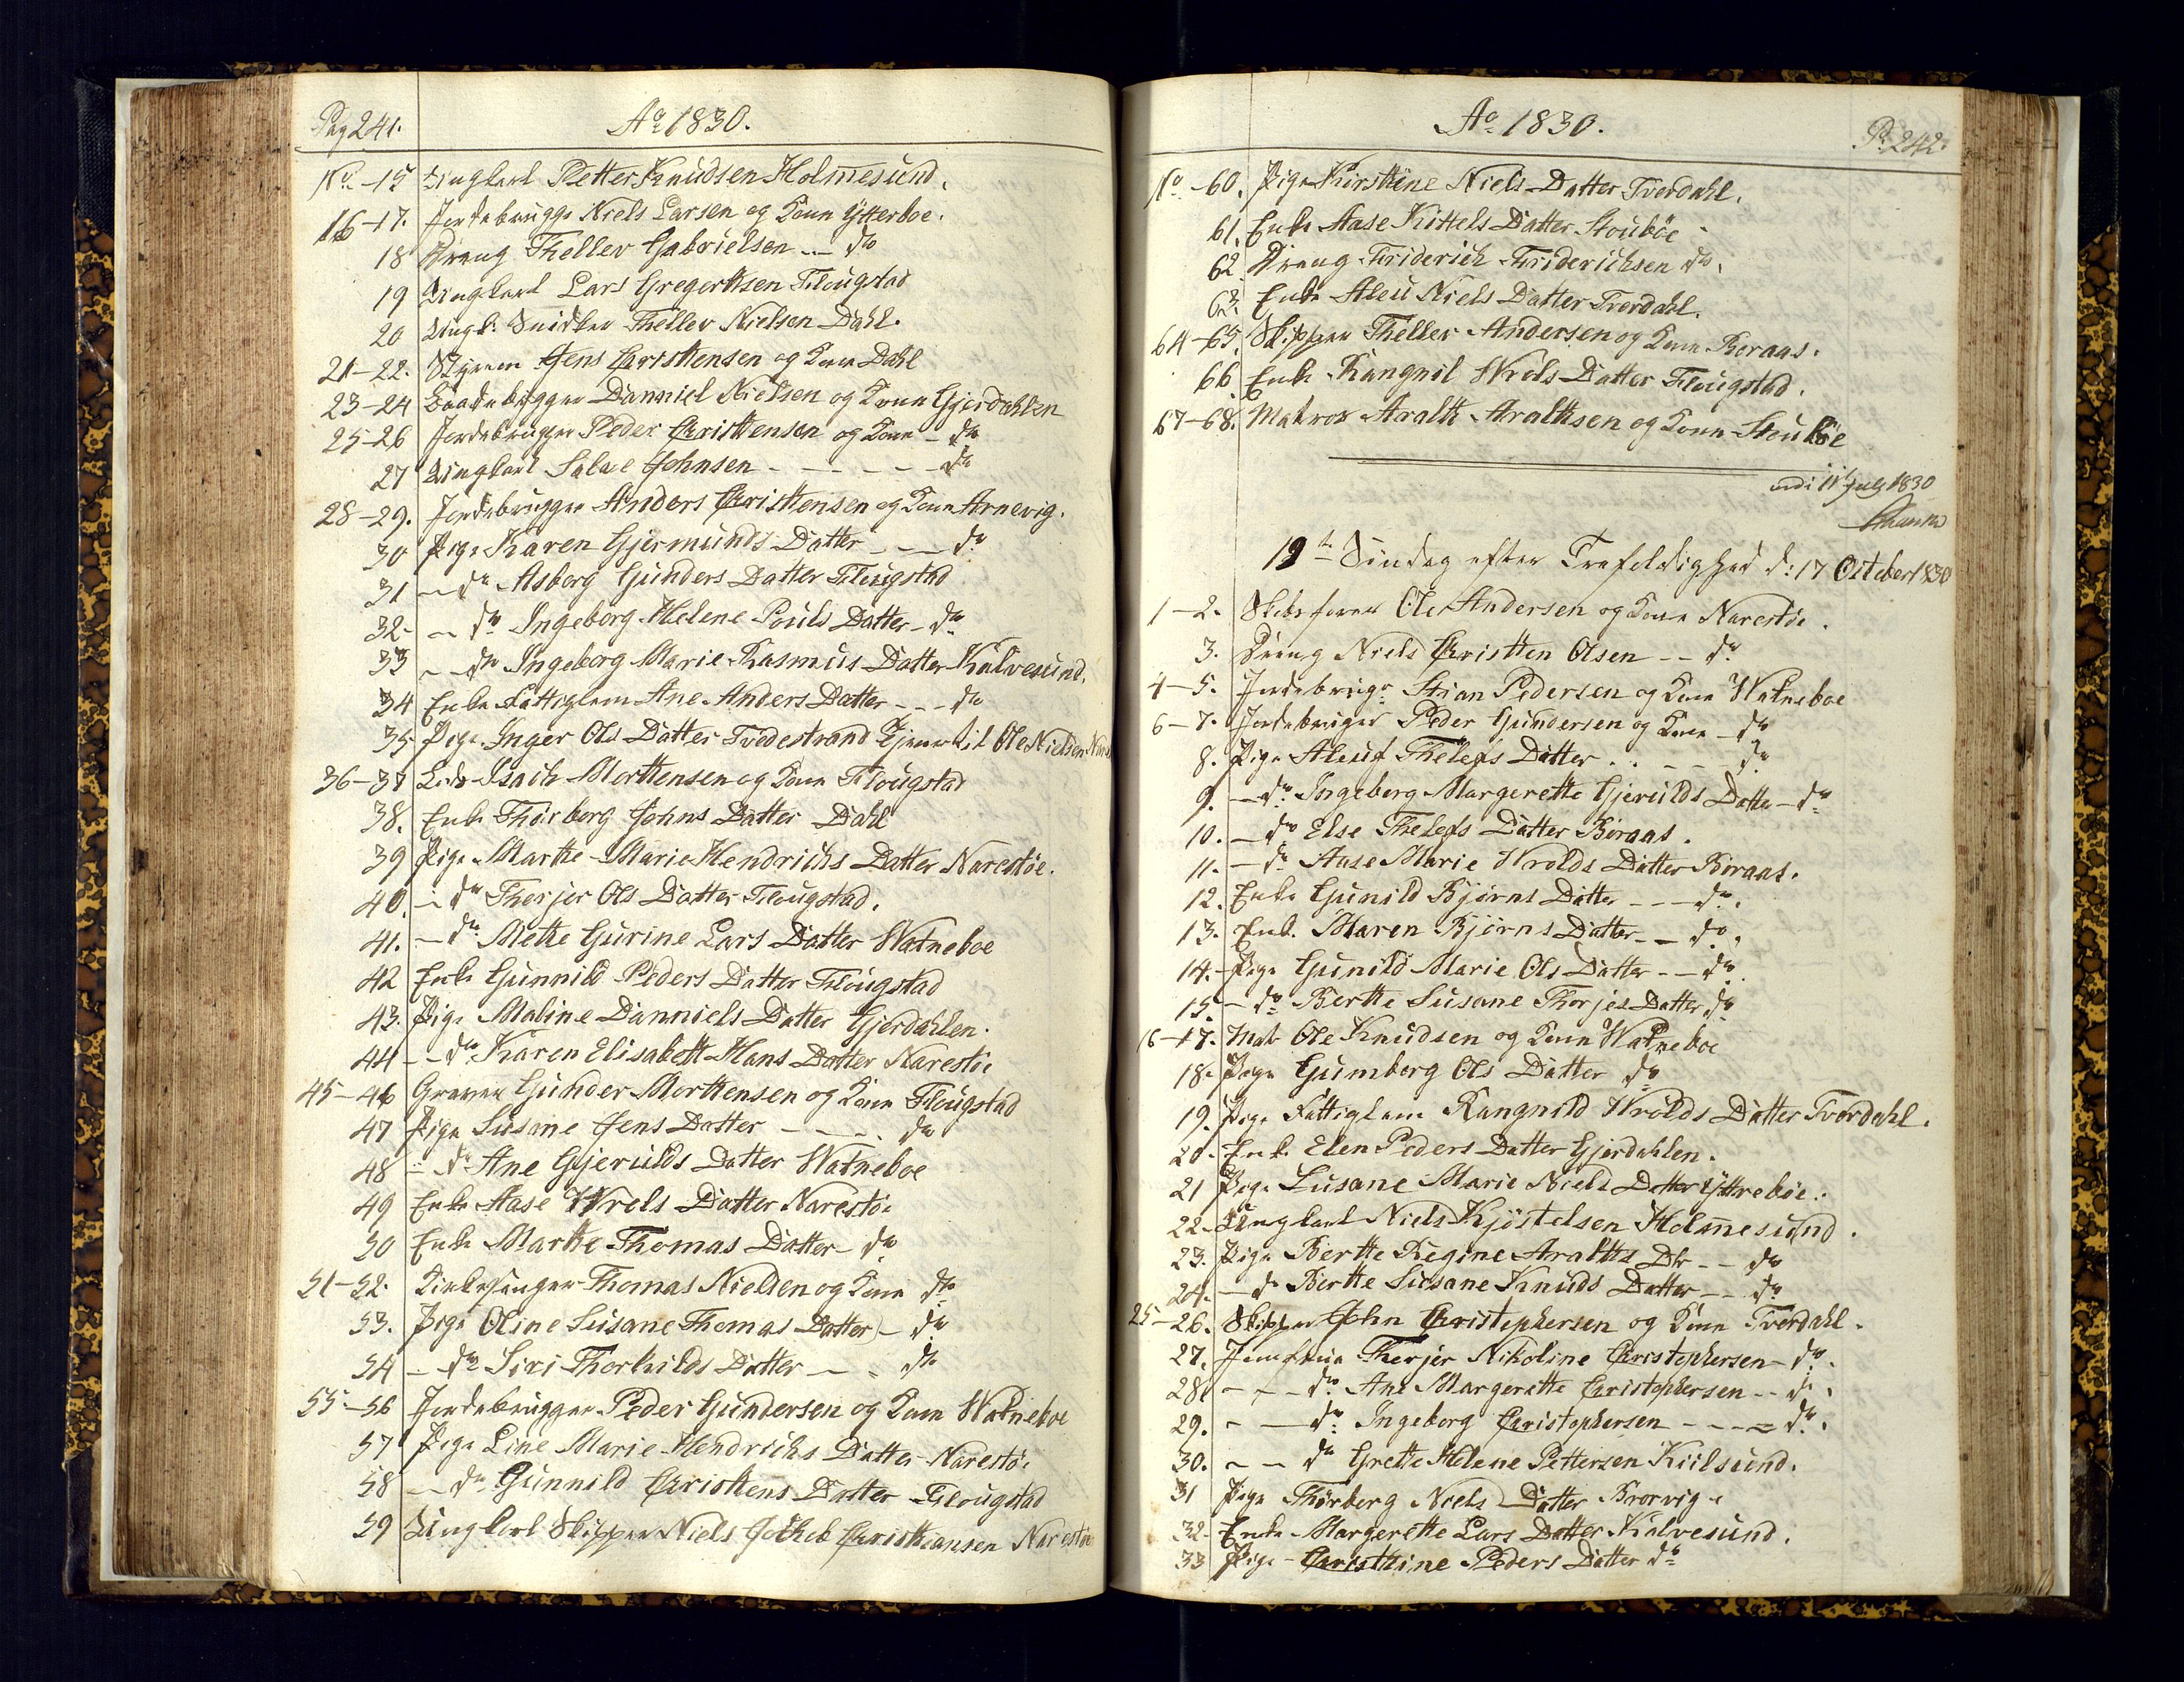 Pag 241.
Ao 1830.
No - 15 Ungkarl Petter Knudsen Holmesund.
16-17. Jordebrugge Niels Larsen og Kone Ytterboe.
18 Dreng Thellev Gabrielsen -- do
19 Ungkarl Lars Gregertsen Flougstad
20 Ungk: Snidker Thellev Nielsen Dahl.
21-22. Styrem Jens Christensen og Kone Dahl
23-24 Baadebygger Danniel Nielsen og Kone Gjerdahlen
25-26 Jordebrugger Peder Christensen og Kone - do
27 Ungkarl Salve Johnsen - - - - - do
28-29. Jordebrugger Anders Christensen og Kone Arnevig.
30 Pige Karen Gjermunds Datter - - - do
31 - do Asborg Gunders Datter Flougstad
32- - do Ingeborg Helene Pouls Datter - do
33 - - do Ingeborg Marie Rasmus Datter Kalvesund.
34 Enke Fattiglem Ane Anders Datter - - - do
35 Pige Inger Ols Datter Tvedestrand tjener til Ole Nielsen
36-37 Lods Isach Morttensen og Kone Flougstad
38. Enke Thorborg Johns Datter Dahl
39 Pige Marthe Marie Hendrichs Datter Narestöe.
40. - do Therjer Ols Datter Flougstad.
41. - do Mette Gurine Lars Datter Watneboe
42 Enke Gunnild Peders Datter Flougstad
43. Pige Maline Danniels Datter Gjerdahlen.
44 - - do Karen Elisabett Hans Datter Narestöe
45-46 Graver Gunder Morttensen og Kone Flougstad
47 Pige Susane Jens Datter - - - - do
48 - do Ane Gjerulds Datter Watneboe
49 Enke Aase Wrols Datter Narestöe
50 Enke Marthe Thomas Datter - do
51-52. Kirkesanger Thomas Nielsen og Kone do
53. Pige Oline Susane Thomas Datter - do
54 - do Siri Thorkilds Datter - - do
55-56 Jordebrugger Peder Gundersen og Kone Watneboe
57 Pige Line Marie Hendrichs Datter Narestöe
58 - do Gunnild Christens Datter Flougstad
59 Ungkarl Skipper Niels Jocheb Christiansen Narestöe
Ao 1830.
P. 242.
No - 60. Pige Kirstine Niels Datter Tverdahl.
61. Enke Aase Kittels Datter Stouböe
62 Dreng Friderich Friderichsen do.
63. Enke Aleu Niels Datter Tverdahl.
64-65. Skipper Thellev Andersen og Kone Boraas.
66 Enke Rangnil Wrols Datter Flougstad.
67-68. Matros Aralth Aralthsen og Kone Stouböe
11 July 1830
19de Søndag efter Trefoldighed d: 17 October 1830
1-2. Skibsfører Ole Andersen og Kone Narestöe.
3. Dreng Niels Christten Olsen - - do
4-5. Jordebrugr Stian Pedersen og Kone Watneboe
6-7. Jordebruger Peder Gundersen og Kone - do
8. Pige Aleuf Thelefs Datter . . - - - do
9. - do Ingeborg Margerette Gjerulds Datter - do
10. - do Else Thelefs Datter Boraas.
11. - do Aase Marie Wrolds Datter Boraas.
12. Enke Gunild Bjørns Datter - - - do.
13. Enk. Maren Bjørns Datter - - do.
14. Pige Gunild Marie Ols Datter - - do
15. - do Berthe Susane Thorjes Datter do
16-17. Mat Ole Knudsen og Kone Watneboe
18. Pige Gumborg Ols Datter do
19. Pige Fattiglem Rangnild Wrolds Datter Tverdahl.
20. Enke Elen Peders Datter Gjerdahlen.
21 Pige Susane Marie Niels Datter Yttreböe.
22. Ungkarl Niels Kjöstelsen Holmesund.
23. Pige Berthe Regine Aralths Dtr - - do
24. - do Berthe Susane Knuds Datter - - do
25-26. Skipper John Christophersen og Kone Tverdahl.
27. Jomfrue Therjer Nikoline Christophersen - do.
28. - - - do. Ane Margerette Christophersen - - do.
29. - - do. Ingeborg Christophersen - - - - do.
30. - - do Grette Helene Pettersen Kiilsund.
31 Pige Thorborg Niels Datter Brorvig
32. Enke Margerette Lars Datter Kalvesund.
33 Pige Christhine Peders Datter do